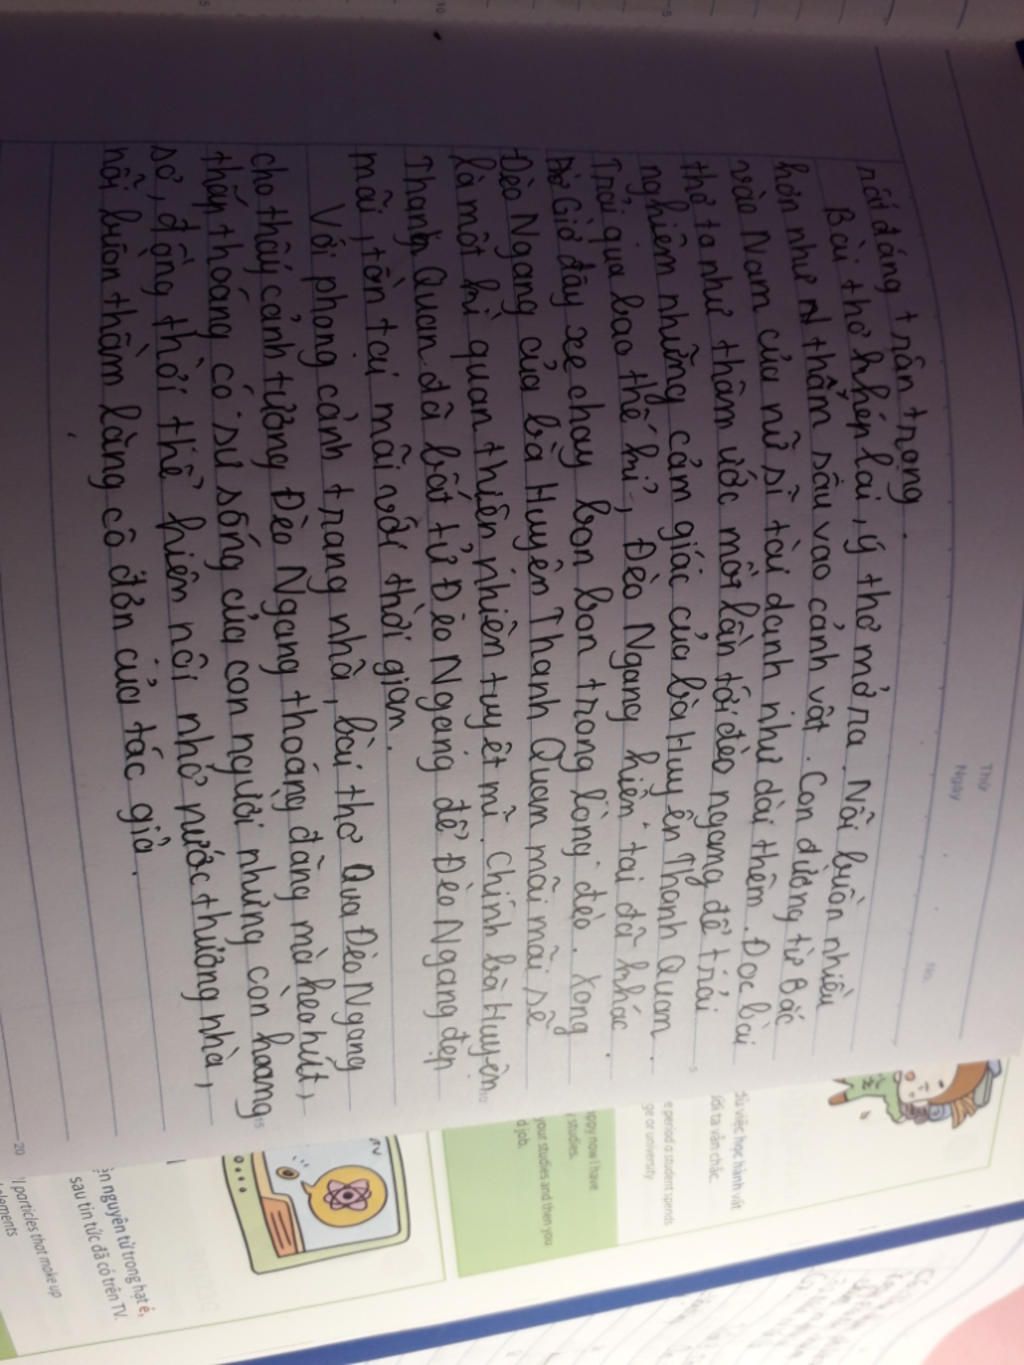 Thứ
Ngày
No.
rất đáng trân trọng.
Bài thơ khép lại, ý thơ mở ra. Nỗi buồn nhiều
hơn như N thấm sâu vao cảnh vật. Con đường từ Bắc
vào Nam của nữ sĩ tài danh như dài thêm. Đọc bài
thơ ta như thầm ước một lần tới đèo ngang để trải
nghiệm những cảm giác của bà Huyện Thanh Quan.
Trải qua bao thế kỉ, Đèo Ngang hiện tại đã khác.
Giờ đây xe chạy bon bon trong lòng đèo. Xong
Đèo Ngang của bà Huyện Thanh Quan mãi mãi sẽ
là một kì quan thiên nhiên tuyệt mĩ. Chính bà Huyện
Thanh Quan đã bất tử Đèo Ngang để Đèo Ngang đẹp
mãi, tồn tại mãi với thời gian.
Với phong cảnh trang nhã, bài thơ Qua Đèo Ngang
cho thấy cảnh tượng Đèo Ngang thoáng đãng mà heo hút,
thấp thoáng có sự sống của con người nhưng còn hoang
sơ, đồng thời thể hiện nỗi nhớ nước thương nhà,
nỗi buồn thầm lặng cô đơn của tác giả.
5
10
15
20
dù việc học hành vất
ười ta vẫn chắc.
e period a student spends
ge or university
appy now I have
studies.
your studies and then you
d job.
TV
ện nguyên tử trong hạt é,
sau tin tức đã có trên TV.
l particles that make up
elements